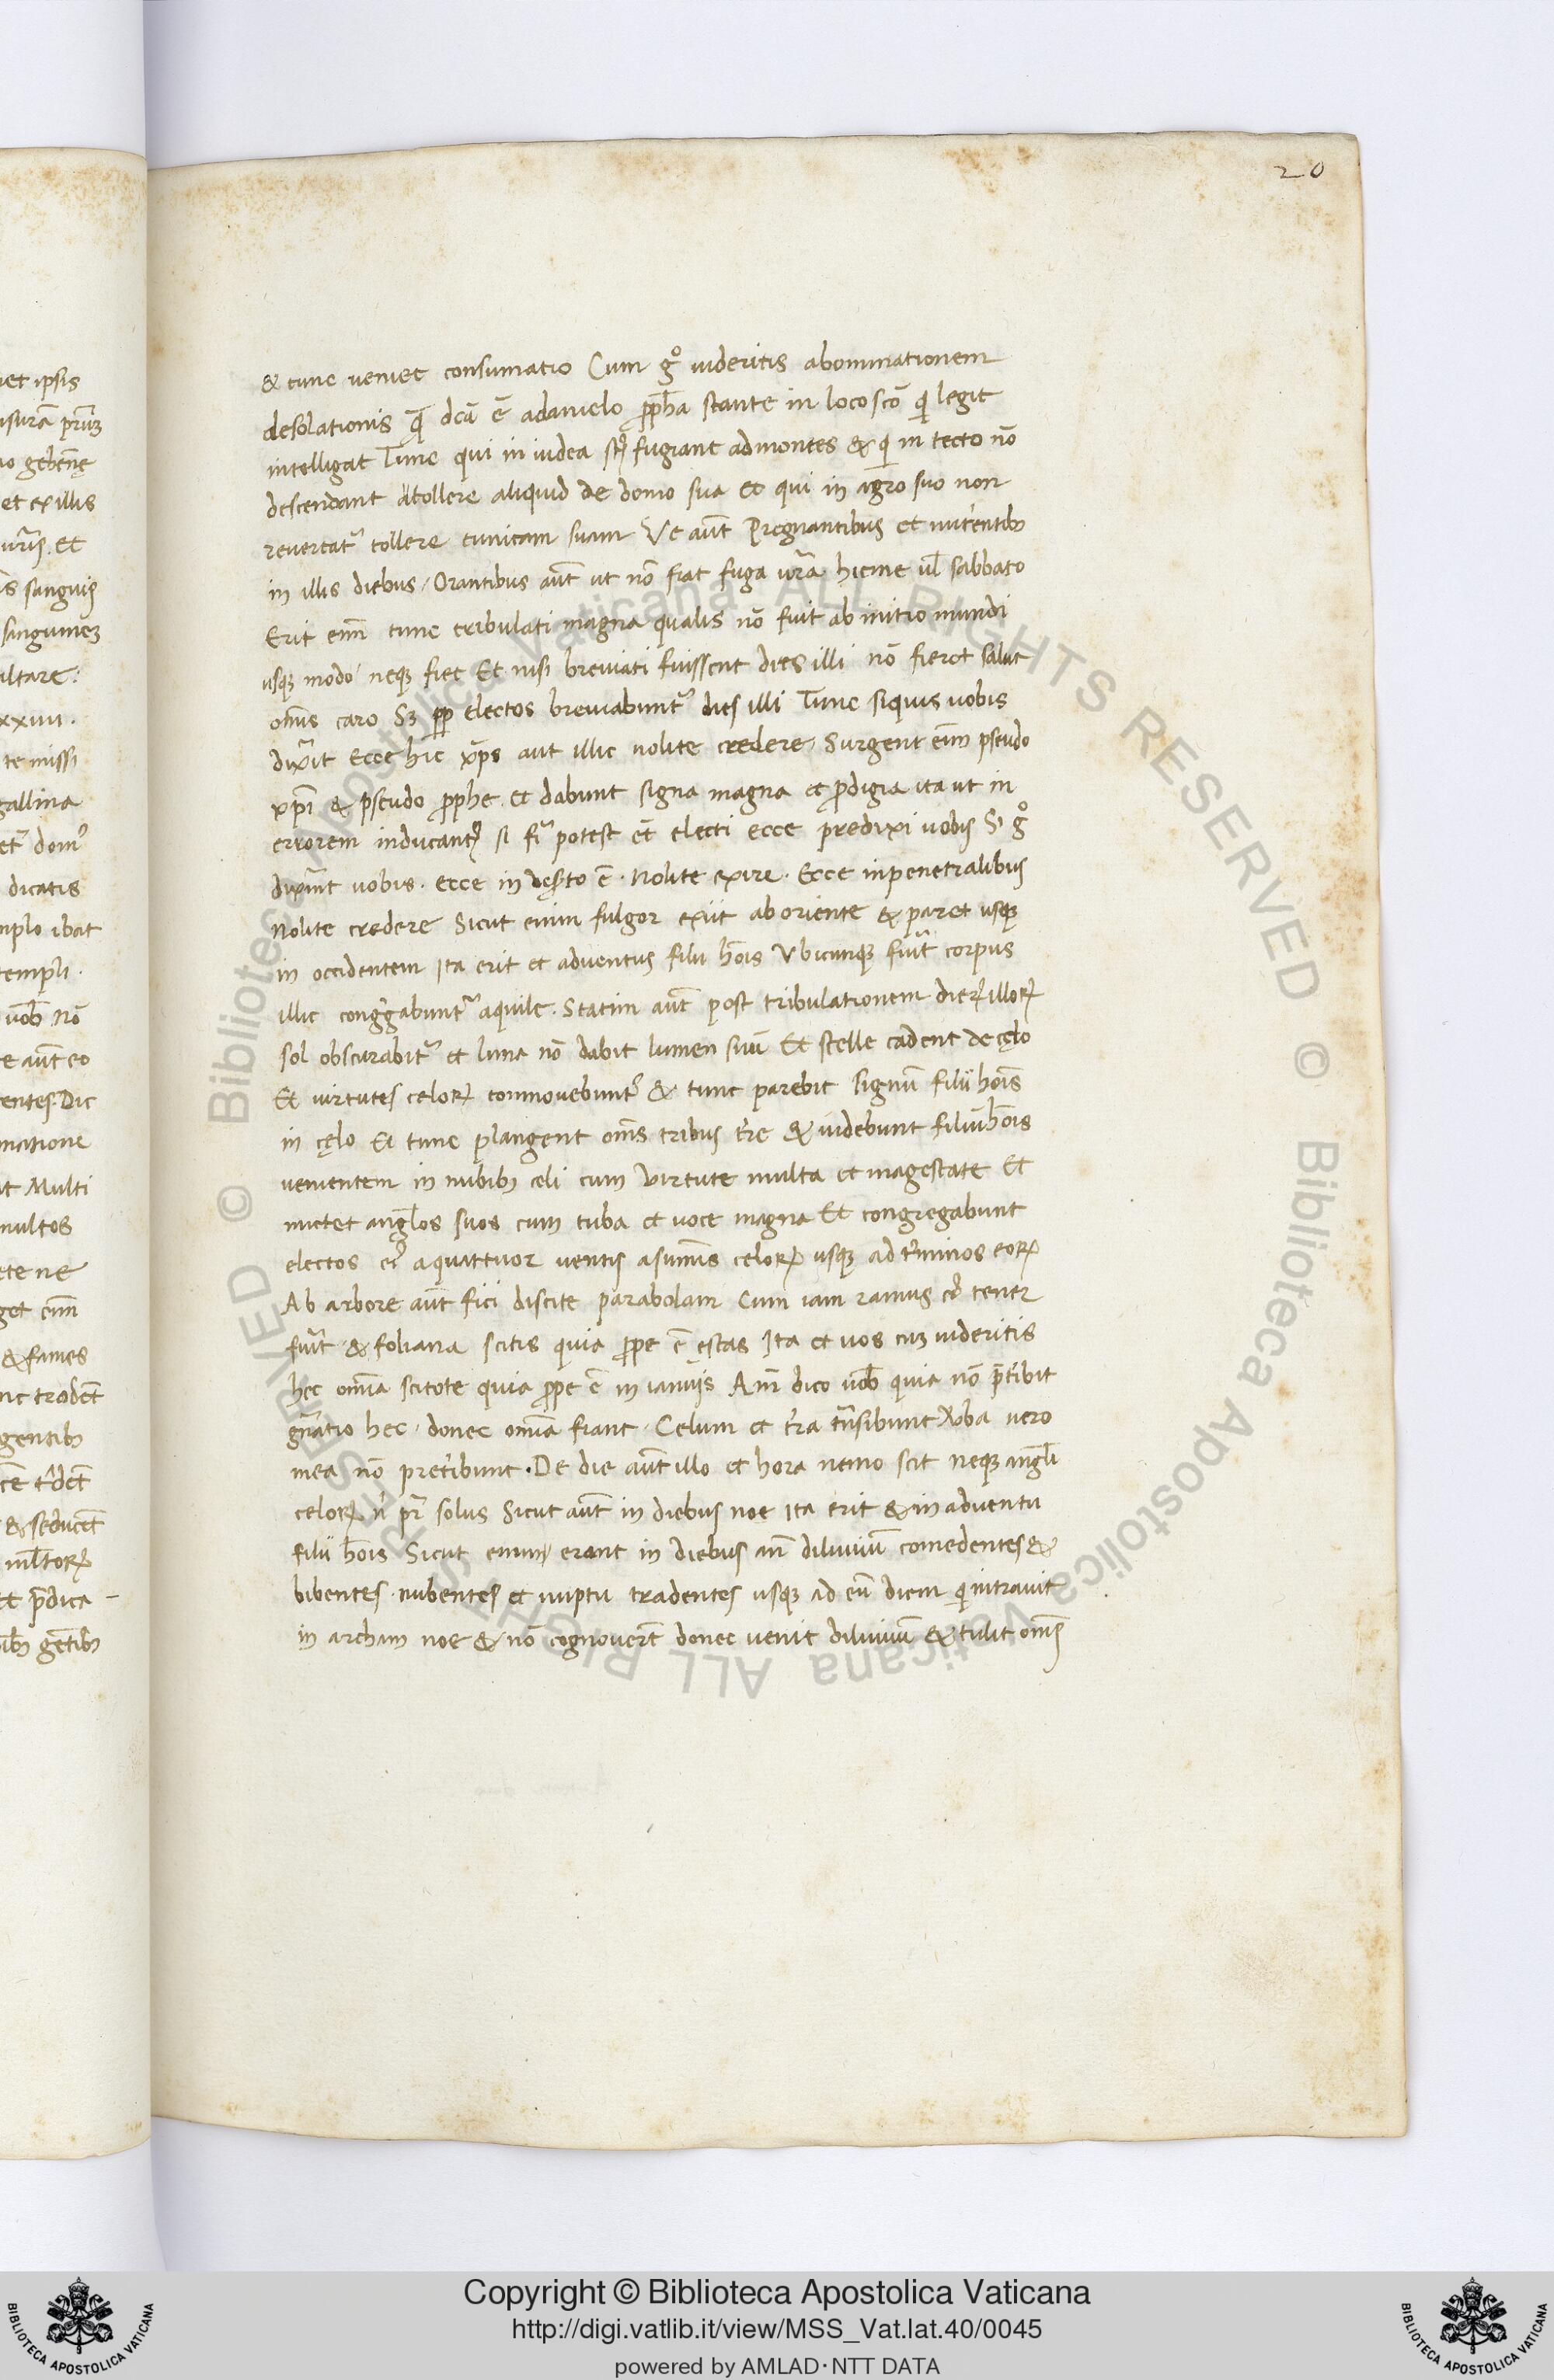 20
& tunc ueniet consumatio Cum g° uideritis abominationem
desolationis q̄ dcā ē adanielo ꝓph̄a stante in loco scō qi legit
intelligat Tunc qui in iudea st̄ fugiant admontes & qi in tecto nō
descendant atollere aliquid de domo sua et qui in agro suo non
reuertat᷑ tollere tunicam suam Ve aut̄ Pregnantibus et nutrentib;
in illis diebus, Orantibus aut̄ ut nō fiat fuga ur̄a hieme ul̄ sabbato
Erit eni᷑ tunc tribulati magna qualis nō fuit ab initio mundi
usq; modo neq; fiet Et nisi breuiati fuissent dies illi nō fieret salua
om̄s caro Sꝫ ꝓp electos breuiabunt᷑ dies illi Tunc siquis uobis
dix̄it Ecce hic xp̄s aut illic nolite credere, Surgent eni᷑ pseudo
xp̄i & pseudo ꝓphe et dabunt signa magna et ꝓdigia ita ut in
errorem inducant᷑ si fi᷑ potest et̄ electi ecce predixi uobis Si g°
dix̄int uobis. ecce in deserto ē. Nolite exire. Ecce inpenetralibus
Nolite credere Sicut enim fulgor exiit ab oriente & paret usq;
in occidentem Ita erit et aduentus filii hōis Vbicunq; fuit̄ corpus
illic congregabunt᷑ aquile. Statim aut̄ post tribulationem dieꝝ illoꝝ
sol obscurabit᷑ et luna nō dabit lumen suū Et stelle cadent de cęlo
Et uirtutes celoꝝ commouebunt᷑ & tunc parebit signū filii hōis
in cęlo Et tunc plangent om̄s tribus tr̄e & uidebunt filiū hōis
uenientem in nubib; celi cum uirtute multa et magestate Et
mictet angl̄os suos cum tuba et uoce magna Et congregabunt
electos ei᷑ aquattuor uentis asummis celoꝝ usq; ad t̄minos eoꝝ
Ab arbore aut̄ fici discite parabolam Cum iam ramus ei᷑ tener
fuit̄ & foliana scitis quia ꝓpe ē ęstas Ita et uos cuꝫ uideritis
hec om̄ia scitote quia ꝓpe ē in ianuis Am̄ dico uob̄ quia nō p̄t̄ibit
gn̄ratio hec, donec om̄ia fiant. Celum et tr̄a tn̄sibunt Vba uero
mea nō pret̄ibunt. De die aut̄ illo et hora nemo scit neq; angl̄i
celoꝝ n̄ pr̄ solus Sicut aut̄ in diebus noe Ita erit & in aduentu
filii hōis Sicut enim erant in diebus an̄ diluuiū comedentes &
bibentes. nubentes et nuptu tradentes usq; ad eū diem qi intrauit
in archam noe & nō cognouert̄ donec uenit diluuiū & tulit om̄s
Copyright © Biblioteca Apostolica Vaticana
http://digi.vatlib.it/view/MSS_Vat.lat.40/0045
powered by AMLAD·NTT DATA